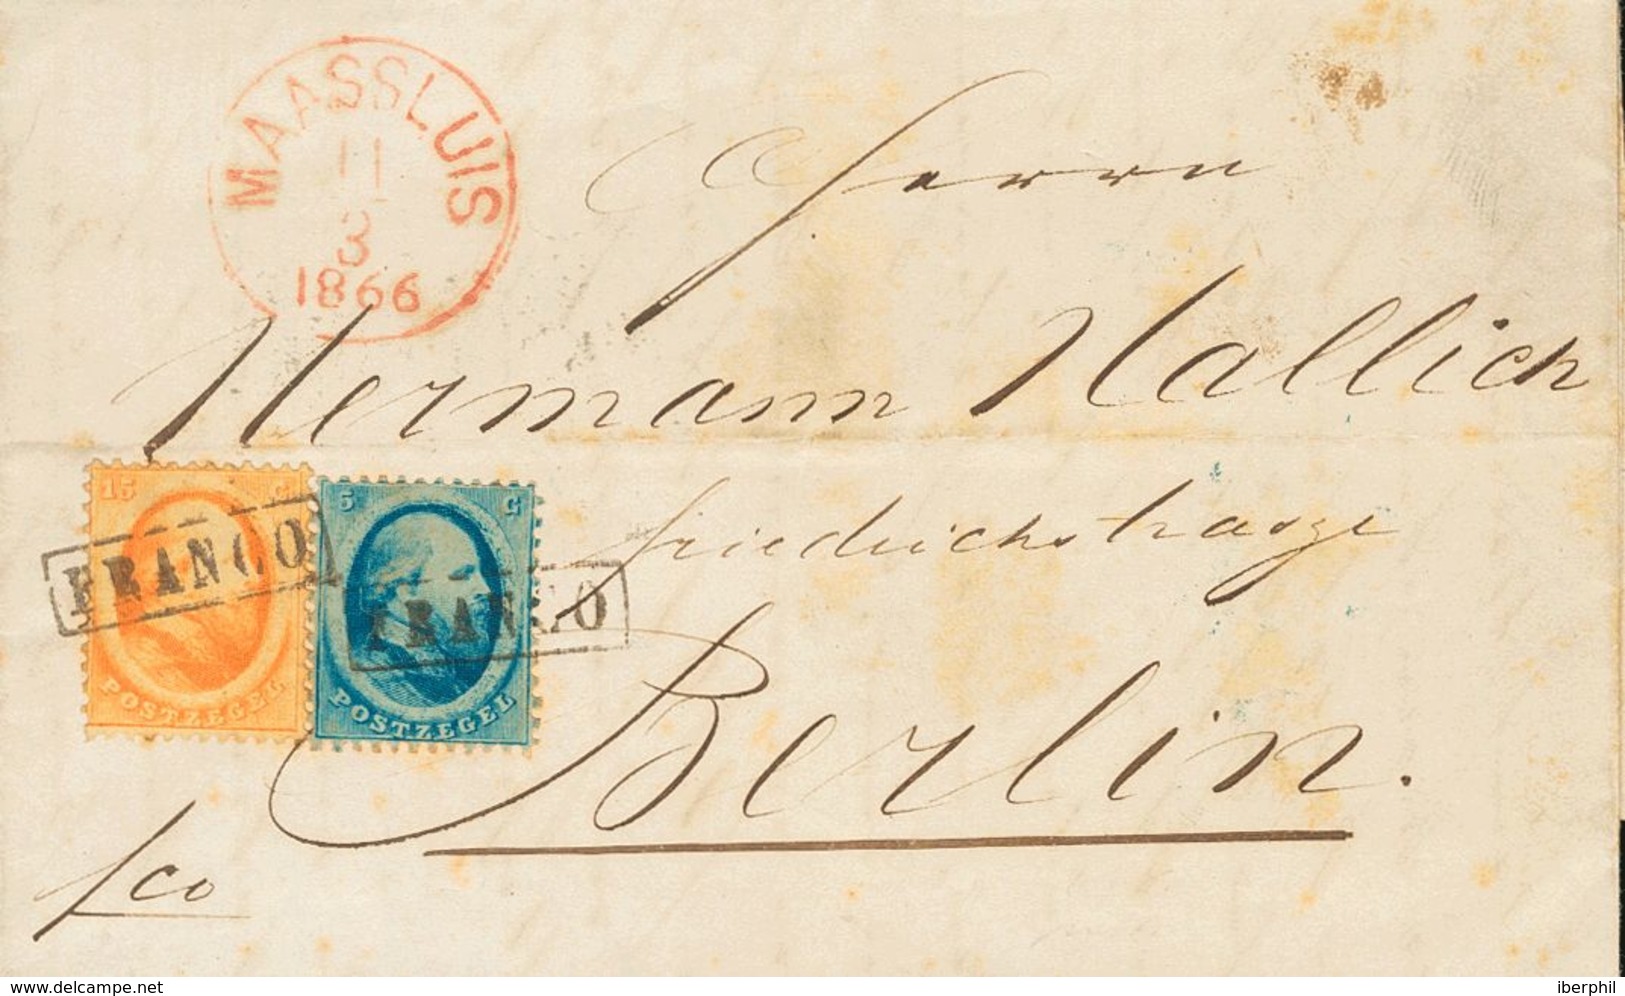 MAASSLUIS
11
3
1866
Herrn
Hermann Hallich
15 C
5 C
FRANCO
FRANCO
Friedrichstrasze
POSTZEGEL
POSTZEGEL
Berlin.
fco
www.delcampe.net
iberphil